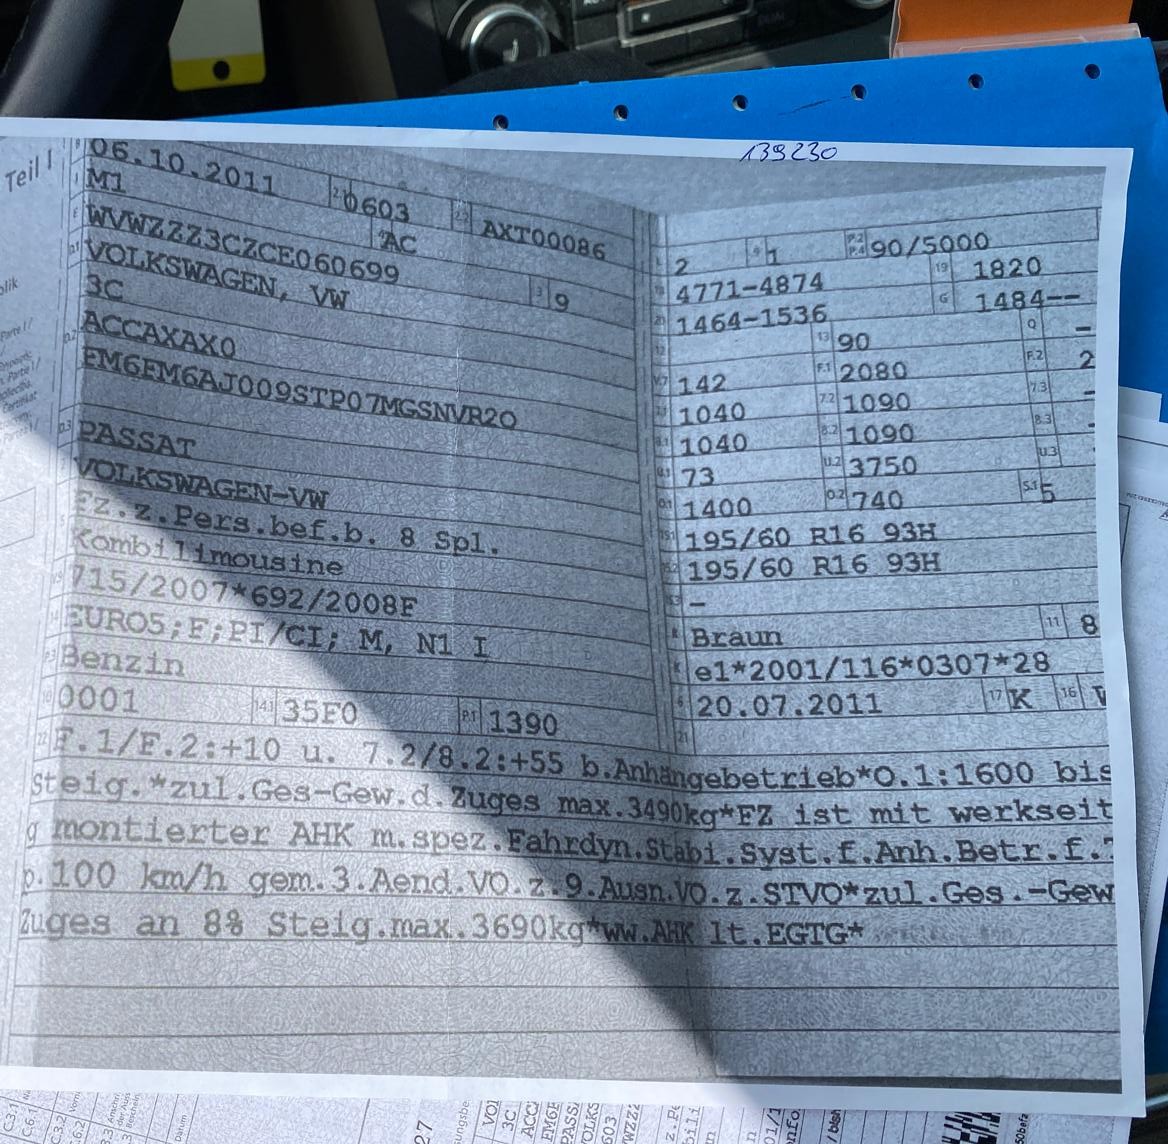 139230
Teil I
06.10.2011 0603 AXT00086
M1 AC
WVWZZZ3CZCE060699 9
VOLKSWAGEN, VW
3C
ACCAXAX0
EM6FM6AJ009STP07MGSNVR2O
PASSAT
VOLKSWAGEN-VW
Fz.z.Pers.bef.b. 8 Spl.
Kombilimousine
715/2007*692/2008F
EURO5;F;PI/CI; M, N1 I
Benzin
0001 14.1 35F0 P.1 1390
2 9 1 P.2 P.4 90/5000
4771-4874 19 1820
1464-1536 G 1484--
13 90 Q -
142 F.1 2080 F.2 2
1040 7.2 1090 7.3 -
1040 8.2 1090 8.3 -
73 U.2 3750 U.3
1400 O.2 740 S.1 5
195/60 R16 93H
195/60 R16 93H
-
Braun 11 8
K e1*2001/116*0307*28
6 20.07.2011 17 K 16
21
22 F.1/F.2:+10 u. 7.2/8.2:+55 b.Anhängebetrieb*O.1:1600 bis
Steig.*zul.Ges-Gew.d.Zuges max.3490kg*FZ ist mit werkseit
g montierter AHK m.spez.Fahrdyn.Stabi.Syst.f.Anh.Betr.f.
p.100 km/h gem.3.Aend.VO.z.9.Ausn.VO.z.STVO*zul.Ges.-Gew
Zuges an 8% Steig.max.3690kg*ww.AHK lt.EGTG*